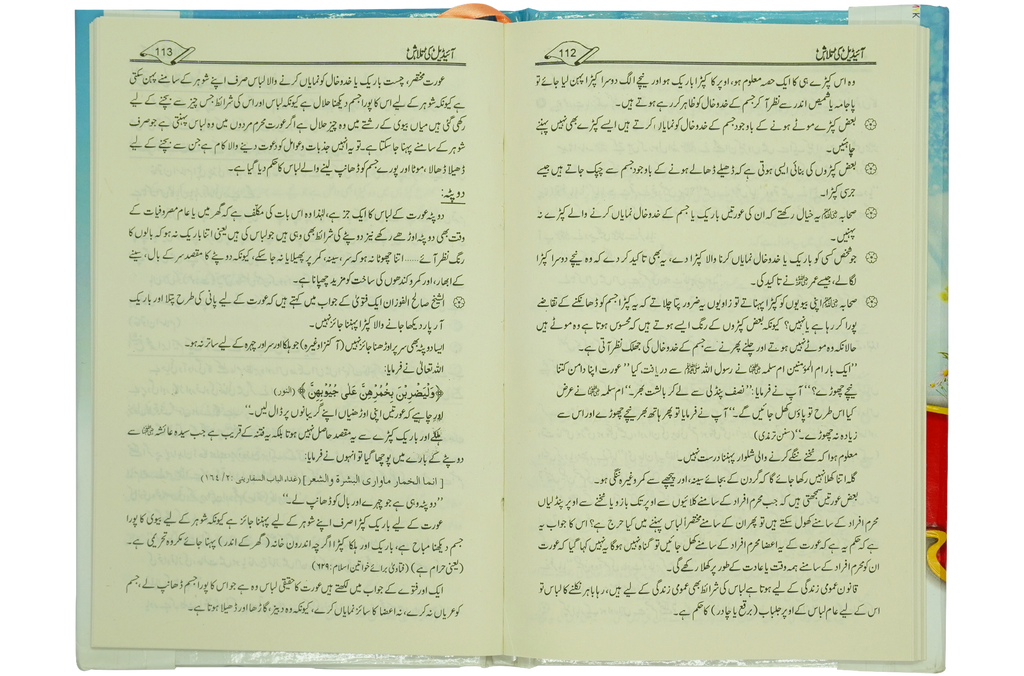 112 آئیڈیل کی تلاش
وہ اس کپڑے ہی کا ایک حصہ معلوم ہو، اوپر کا کپڑا باریک ہو اور نیچے الگ دوسرا کپڑا پہن لیا جائے تو
پاجامہ یا شمیض اندر سے نظر آکر جسم کے خدوخال کو ظاہر کر رہے ہوتے ہیں۔
بعض کپڑے موٹے ہونے کے باوجود جسم کے خدوخال کو نمایاں کرتے ہیں ایسے کپڑے بھی نہیں پہننے
چاہئیں۔
بعض کپڑوں کی بنائی ایسی ہوتی ہے کہ ڈھیلے ڈھالے ہونے کے باوجود جسم سے چپک جاتے ہیں جیسے
جرسی کپڑا۔
صحابہ ﷺ یہ خیال رکھتے کہ ان کی عورتیں باریک یا جسم کے خدوخال نمایاں کرنے والے کپڑے نہ
پہنیں۔
جو شخص کسی کو باریک یا خدوخال نمایاں کرنا والا کپڑا دے، یہ بھی تاکید کر دے کہ وہ نیچے دوسرا کپڑا
لگالے، جیسے عمر نے تاکید کی۔
صحابہ اپنی بیویوں کو کپڑا پہناتے تو زاویوں یہ ضرور پتا چلاتے کہ یہ کپڑا جسم کو ڈھانکنے کے تقاضے
پورا کر رہا ہے یا نہیں؟ کیونکہ بعض کپڑوں کے رنگ ایسے ہوتے ہیں کہ محسوس ہوتا ہے وہ موٹے ہیں
حالانکہ وہ موٹے نہیں ہوتے اور چلنے پھرنے سے جسم کے خدوخال کی جھلک نظر آتی ہے۔
"ایک بار ام المؤمنین ام سلمہ نے رسول اللہ ﷺ سے دریافت کیا "عورت اپنا دامن کتنا
نیچے چھوڑے؟" آپ نے فرمایا: "نصف پنڈلی سے لے کر بالشت بھر۔" ام سلمہ نے عرض
کیا اس طرح تو پاؤں کھل جائیں گے۔" آپ نے فرمایا تو پھر ہاتھ بھر نیچے چھوڑے اور اس سے
زیادہ نہ چھوڑے۔" (سنن ترمذی)
معلوم ہوا کہ ٹخنے ننگے کرنے والی شلوار پہننا درست نہیں۔
گلہ اتنا کھلا نہیں رکھا جائے گا کہ گردن کے بجائے سینہ، اور پیچھے سے کمر وغیرہ ننگی ہو۔
بعض عورتیں سمجھتی ہیں کہ جب محرم افراد کے سامنے کلائیوں سے اوپر تک بازو یا ٹخنے سے اوپر پنڈلیاں
محرم افراد کے سامنے کھول سکتے ہیں تو پھر ان کے سامنے مختصر لباس پہننے میں کیا حرج ہے؟ اس کا جواب یہ
ہے کہ حکم یہ ہے کہ عورت کے یہ اعضا محرم افراد کے سامنے کھل جائیں تو گناہ نہیں ہوگا یہ نہیں کہا گیا کہ عورت
ان کو محرم افراد کے سامنے ہمہ وقت یا عادت کے طور پر کھلا رکھے گی۔
قانون عمومی زندگی کے لیے ہوتا ہے لباس کی شرائط بھی عمومی زندگی کے لیے ہیں، رہا باہر نکلنے کا لباس تو
اس کے لیے عام لباس کے اوپر جلباب (برقع یا چادر) کا حکم ہے۔
113 آئیڈیل کی تلاش
عورت مختصر، چست باریک یا خدوخال کو نمایاں کرنے والا لباس صرف اپنے شوہر کے سامنے پہن سکتی
ہے کیونکہ شوہر کے لیے اس کا پورا جسم دیکھنا حلال ہے کیونکہ لباس اور اس کی شرائط جس چیز سے بچنے کے لیے
رکھی گئی ہیں میاں بیوی کے رشتے میں وہ چیز حلال ہے اگر عورت محرم مردوں میں وہ لباس پہنتی ہے جو صرف
شوہر کے سامنے پہنا جا سکتا ہے۔ تو یہ انہیں جذبات و عوامل کو دعوت دینے والا کام ہے جن سے بچنے کے لیے
ڈھیلا ڈھالا، موٹا اور پورے جسم کو ڈھانپ لینے والے لباس کا حکم دیا گیا ہے۔
دوپٹہ:
دوپٹہ عورت کے لباس کا ایک جز ہے، لہٰذا وہ اس بات کی مکلّف ہے کہ گھر میں یا عام مصروفیات کے
وقت بھی دوپٹہ اوڑھے رکھے نیز دوپٹے کی شرائط بھی وہی ہیں جو لباس کی ہیں یعنی اتنا باریک نہ ہو کہ بالوں کا
رنگ نظر آئے ..... اتنا چھوٹا نہ ہو کہ سر، سینہ، کمر پر پھیلایا نہ جا سکے، کیونکہ دوپٹے کا مقصد سر کے بال، سینے
کے ابھار، اور کمر و کندھوں کی ساخت کو مزید چھپانا ہے۔
الشیخ صالح الفوزان ایک فتویٰ کے جواب میں کہتے ہیں کہ عورت کے لیے پانی کی طرح پتلا اور باریک
آر پار دیکھا جانے والا کپڑا پہننا جائز نہیں۔
ایسا دوپٹہ بھی سر پر اوڑھنا جائز نہیں (آرگنزا وغیرہ) جو ہلکا اور سر اور چہرہ کے لیے ساتر نہ ہو۔
اللہ تعالیٰ نے فرمایا:
﴿وَلْيَضْرِبْنَ بِخُمُرِهِنَّ عَلَى جُيُوبِهِنَّ﴾ (النور)
اور چاہیے کہ عورتیں اپنی اوڑھنیاں اپنے گریبانوں پر ڈال لیں۔"
ہلکے اور باریک کپڑے سے یہ مقصد حاصل نہیں ہوتا بلکہ یہ فتنہ کے قریب ہے جب سیدہ عائشہ سے
دوپٹے کے بارے میں پوچھا گیا تو انہوں نے فرمایا:
[انما الخمار ماوارى البشرة والشعر] (غذاء الباب السفارينى: ٢/١٦٤)
"دوپٹہ وہی ہے جو چہرے اور بال کو ڈھانپ لے۔"
عورت کے لیے باریک کپڑا صرف اپنے شوہر کے لیے پہننا جائز ہے کیونکہ شوہر کے لیے بیوی کا پورا
جسم دیکھنا مباح ہے، باریک اور ہلکا کپڑا اگرچہ اندرون خانہ (گھر کے اندر) پہنا جائے مکروہ تحریمی ہے۔
(یعنی حرام ہے) (فتاویٰ برائے خواتین اسلام: ۶۴۹)
ایک اور فتوے کے جواب میں لکھتے ہیں عورت کا حقیقی لباس وہ ہے جو اس کا پورا جسم ڈھانپ لے، جسم
کو عریاں نہ کرے، نہ اعضا کا سائز نمایاں کرے، کیونکہ وہ دبیز، گاڑھا اور ڈھیلا ہوتا ہے۔